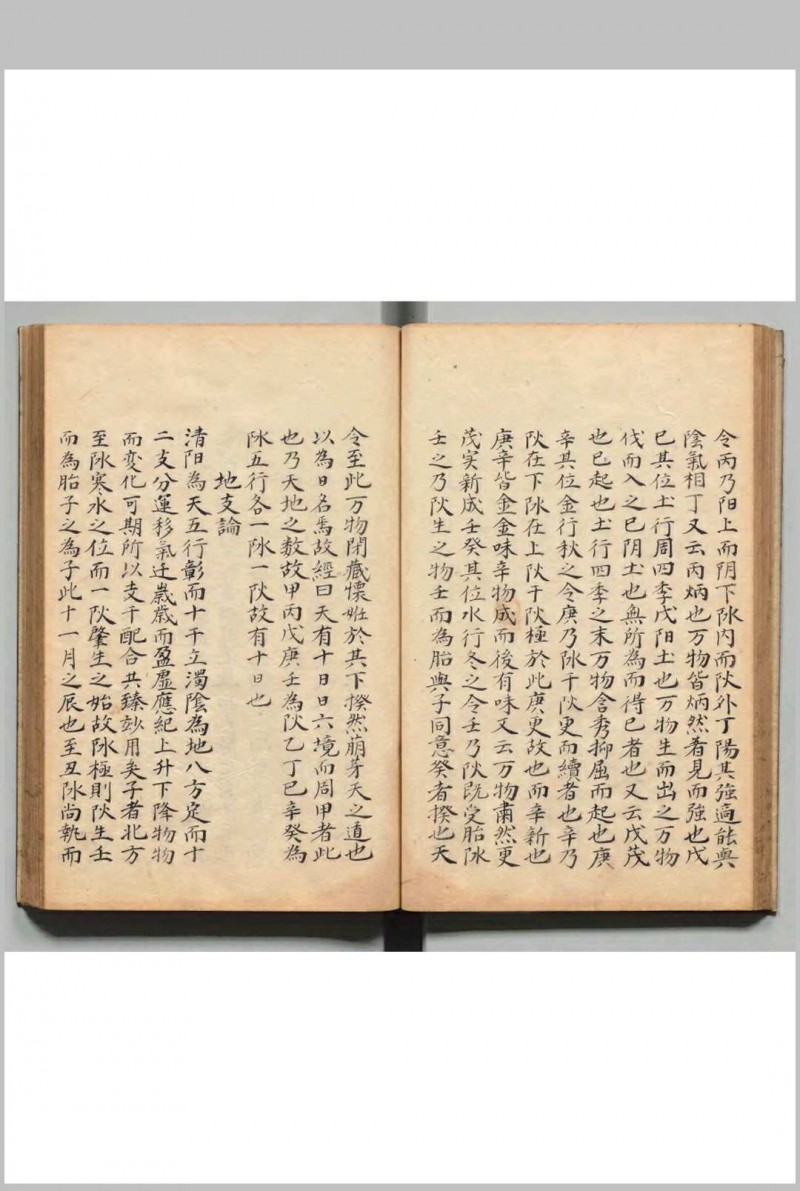 令丙乃阳上而阴下阥内而阦外丁陽其強適能與
陰氣相丁又云丙炳也万物皆炳然着見而強也戊
巳其位圡行周四季戊阳圡也万物生而出之万物
伐而入之巳阴圡也無所為而得巳者也又云戊茂
也巳起也圡行四季之末万物含秀抑屈而起也庚
辛其位金行秋之令庚乃阥干阦更而續者也辛乃
阦在下阥在上阦干阦極於此庚更故也而辛新也
庚辛皆金金味辛物成而後有味又云万物肅然更
茂实新成壬癸其位水行冬之令壬乃阦既受胎阥
壬之乃阦生之物壬而為胎與子同意癸者揆也天
令至此万物閉藏懷姙於其下揆然萠芽天之道也
以為日名焉故經曰天有十日日六境而周甲者此
也乃天地之数故甲丙戊庚壬為阦乙丁巳辛癸為
阥五行各一阥一阦故有十日也
地支論
清阳為天五行彰而十干立濁陰為地八方定而十
二支分運移氣迁歲歲而盈虛應紀上升下降物物
而變化可期所以支干配合共臻玅用矣子者北方
至阥寒水之位而一阦肇生之始故阥極則阦生壬
而為胎子之為子此十一月之辰也至丑阥尚執而